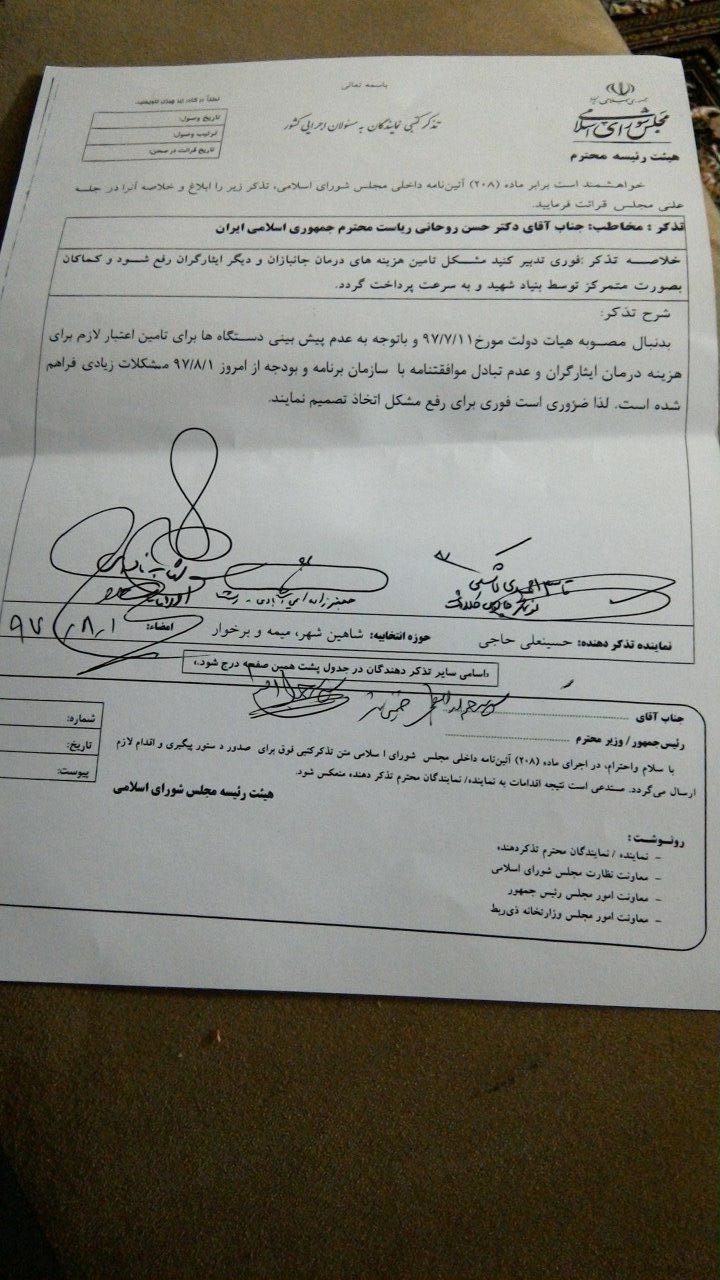 باسمه تعالی
مجلس شورای اسلامی
تذکر کتبی نمایندگان به مسئولان اجرایی کشور
تاریخ وصول:
ترتیب وصول:
تاریخ قرائت در صحن:
هیئت رئیسه محترم
خواهشمند است برابر ماده (۲۰۸) آئین‌نامه داخلی مجلس شورای اسلامی، تذکر زیر را ابلاغ و خلاصه آنرا در جلسه
علنی مجلس قرائت فرمایید.
تذکر : مخاطب: جناب آقای دکتر حسن روحانی ریاست محترم جمهوری اسلامی ایران
خلاصه تذکر :فوری تدبیر کنید مشکل تامین هزینه های درمان جانبازان و دیگر ایثارگران رفع شود و کماکان
بصورت متمرکز توسط بنیاد شهید و به سرعت پرداخت گردد.
شرح تذکر:
بدنبال مصوبه هیات دولت مورخ۹۷/۷/۱۱ و باتوجه به عدم پیش بینی دستگاه ها برای تامین اعتبار لازم برای
هزینه درمان ایثارگران و عدم تبادل موافقتنامه با سازمان برنامه و بودجه از امروز ۹۷/۸/۱ مشکلات زیادی فراهم
شده است. لذا ضروری است فوری برای رفع مشکل اتخاذ تصمیم نمایند.
نماینده تذکر دهنده: حسینعلی حاجی حوزه انتخابیه: شاهین شهر، میمه و برخوار امضاء: ۹۷/۸/۱
«اسامی سایر تذکر دهندگان در جدول پشت همین صفحه درج شود.»
جناب آقای
رئیس‌جمهور/ وزیر محترم
شماره:
تاریخ:
پیوست:
با سلام واحترام، در اجرای ماده (۲۰۸) آئین‌نامه داخلی مجلس شورای ا سلامی متن تذکرکتبی فوق برای صدور د ستور پیگیری و اقدام لازم
ارسال می‌گردد. مستدعی است نتیجه اقدامات به نماینده/ نمایندگان محترم تذکر دهنده منعکس شود.
هیئت رئیسه مجلس شورای اسلامی
رونوشت:
- نماینده / نمایندگان محترم تذکردهنده
- معاونت نظارت مجلس شورای اسلامی
- معاونت امور مجلس رئیس جمهور
- معاونت امور مجلس وزارتخانه ذی‌ربط